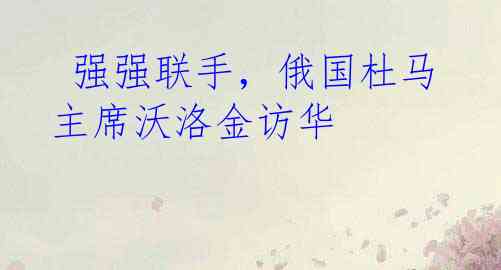 强强联手，俄国杜马
主席沃洛金访华